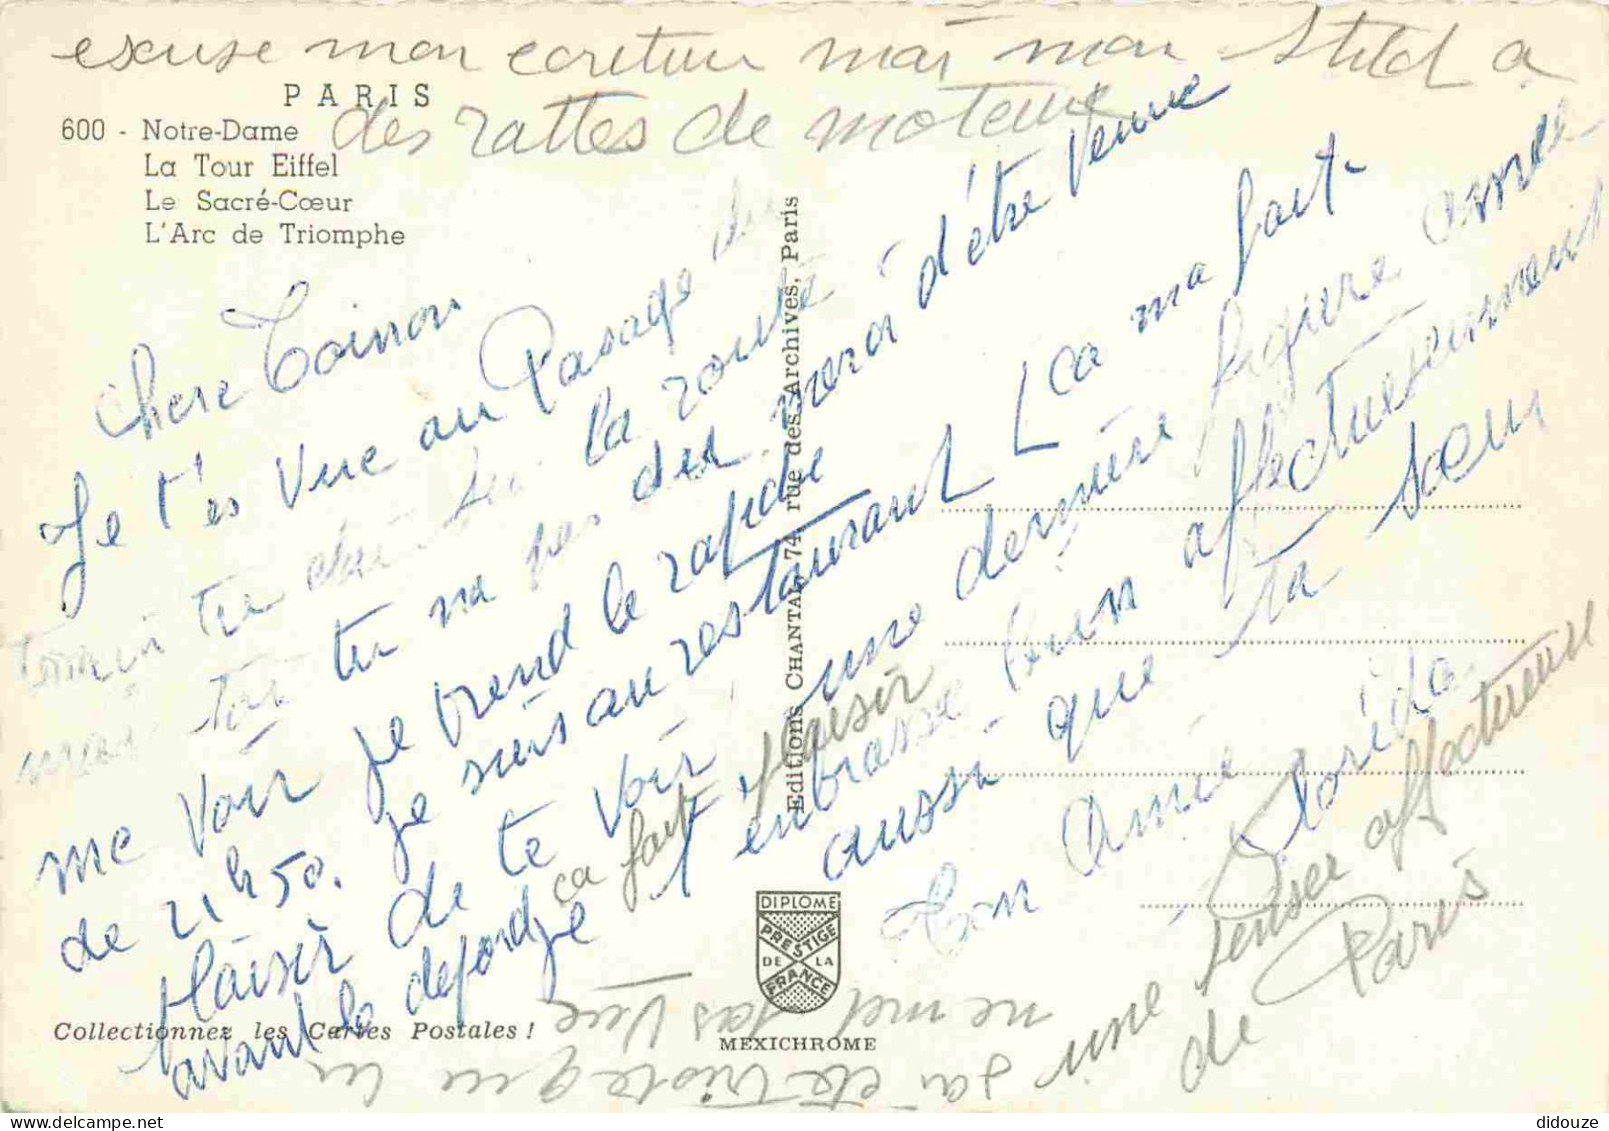 excuse mon ecriture mai mon Stild a
des rattes de moteur
PARIS
600 - Notre-Dame
La Tour Eiffel
Le Sacré-Cœur
L'Arc de Triomphe
Chere Toinon
Je t'es Vue au Pasage du
tu la route
tu na pas du
me Voir je prend le rapide
de 21h50. je suis au restaurant
merci d'être Venue
Plaisir de te Voir
avant le
ca fait plaisir
La ma fait
une dernière figure
T'enbrasse bien affectueusement
aussi que ta Sœur
Ton Amie
une penser affectueu
de Paris
ne met pas Vue
sa ete triste que tu
Editions CHANTAL, 74, rue des Archives, Paris
DIPLOME
PRESTIGE
DE LA
FRANCE
MEXICHROME
Collectionnez les Cartes Postales !
delcampe.net
didouze